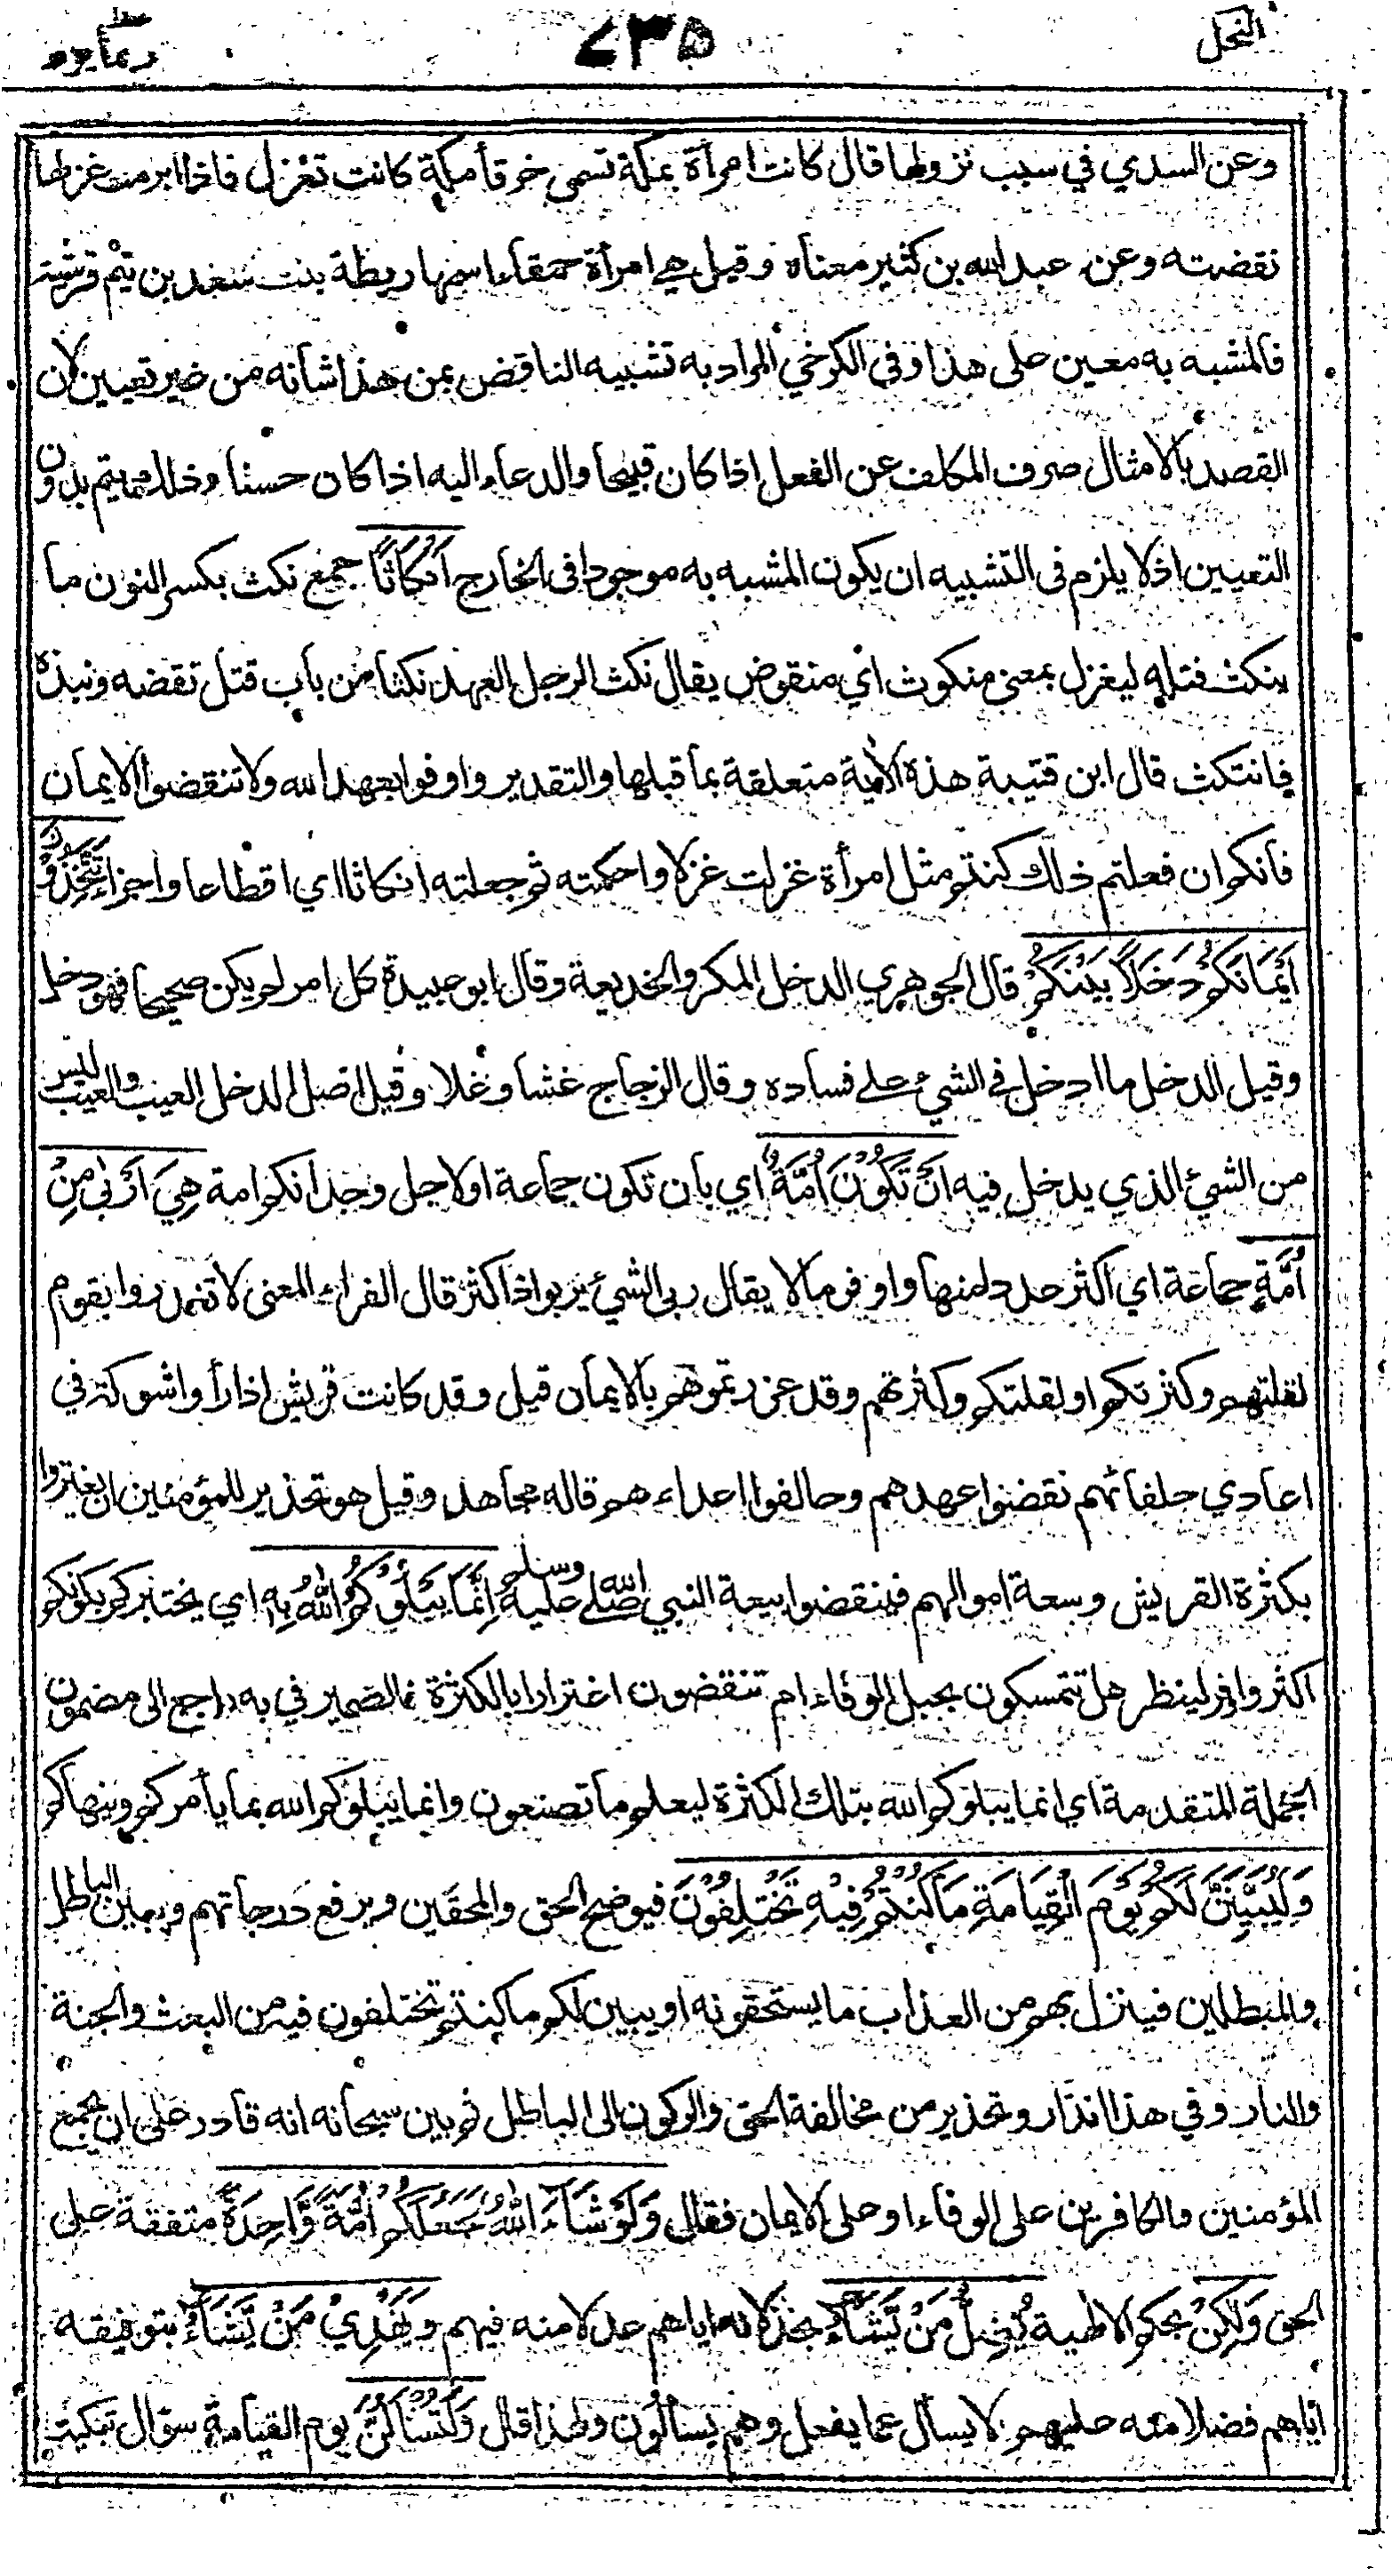 النحل
٢٣٥
ربما ١٤
وعن السدي في سبب نزولها قال كانت امرأة بمكة تسمى خرقأ مكة كانت تغزل فاذا ابرمت غزلها
نقضته وعن عبد الله بن كثير معناه وقيل هي امرأة حمقاء اسمها ريطة بنت سعد بن تيم قرشية
فالمشبه به معين على هذا وفي الكرخي المراد به تشبيه الناقض بمن هذا شأنه من غير تعيين لان
القصد بالامثال صرف المكلف عن الفعل إذا كان قبيحا والدعاء اليه اذا كان حسنا وذلك يتم بدون
التعيين اذ لا يلزم فى التشبيه ان يكون المشبه به موجودا فى الخارج أَنْكَاثًا جمع نكث بكسر النون ما
ينكث فتله ليغزل بمعنى منكوث أي منقوض يقال نكث الرجل العهد نكثا من باب قتل نقضه ونبذه
فانتكث قال ابن قتيبة هذه الأية متعلقة بما قبلها والتقدير واوفوا بعهد الله ولا تنقضوا الايمان
فانكم ان فعلتم ذلك كنتم مثل امرأة غزلت غزلا واحكمته ثم جعلته انكاثا اي اقطاعا واجزاء تَتَّخِذُوْنَ
أَيْمَانَكُمْ دَخَلًا بَيْنَكُمْ قال الجوهري الدخل المكر والخديعة وقال ابو عبيدة كل امر لم يكن صحيحا فهو دخل
وقيل الدخل ما ادخل في الشيء على فساده وقال الزجاج غشا وغلا وقيل اصل الدخل العيب والعيب ليس
من الشيء الذي يدخل فيه أَنْ تَكُوْنَ أُمَّةٌ اي بان تكون جماعة او لاجل وجدانكم امة هِيَ أَرْبٰى مِنْ
أُمَّةٍ جماعة اي اكثر عددا منها واوفر مالا يقال ربى الشيء يربو اذا كثر قال الفراء المعنى لا تغدروا بقوم
لقلتهم وكثرتكم او لقلتكم وكثرتهم وقد عزرتموهم بالايمان قيل وقد كانت قريش اذا رأوا شوكة في
اعادي حلفائهم نقضوا عهدهم وحالفوا اعداءهم قاله مجاهد وقيل هو تحذير للمؤمنين ان يغتروا
بكثرة القريش وسعة اموالهم فينقضوا بيعة النبي صلى الله عليه وسلم إِنَّمَا يَبْلُوْكُمُ اللّٰهُ بِهِ اي يختبركم بكونكم
اكثر واوفر لينظر هل تتمسكون بحبل الوفاء ام تنقضون اغترارا بالكثرة فالضمير في به راجع الى مضمون
الجملة المتقدمة اي انما يبلوكم الله بتلك الكثرة ليعلم ما تصنعون وانما يبلوكم الله بما يأمركم وينهاكم
وَلَيُبَيِّنَنَّ لَكُمْ يَوْمَ الْقِيَامَةِ مَا كُنْتُمْ فِيْهِ تَخْتَلِفُوْنَ فيوضح الحق والمحقين ويرفع درجاتهم ويبين الباطل
والمبطلين فينزل بهم من العذاب ما يستحقونه او يبين لكم ما كنتم تختلفون فيه من البعث والجنة
والنار وفي هذا انذار وتحذير من مخالفة الحق والركون الى الباطل ثم بين سبحانه انه قادر على ان يجمع
المؤمنين والكافرين على الوفاء او على الايمان فقال وَلَوْ شَاءَ اللّٰهُ لَجَعَلَكُمْ أُمَّةً وَّاحِدَةً متفقة على
الحق وَلٰكِنْ بحكم الالهية يُّضِلُّ مَنْ يَّشَاءُ بخذلانه اياهم عدلا منه فيهم وَيَهْدِيْ مَنْ يَّشَاءُ بتوفيقه
اياهم فضلا منه عليهم لا يسأل عما يفعل وهم يسألون ولهذا قال وَلَتُسْأَلُنَّ يوم القيامة سؤال تبكيت